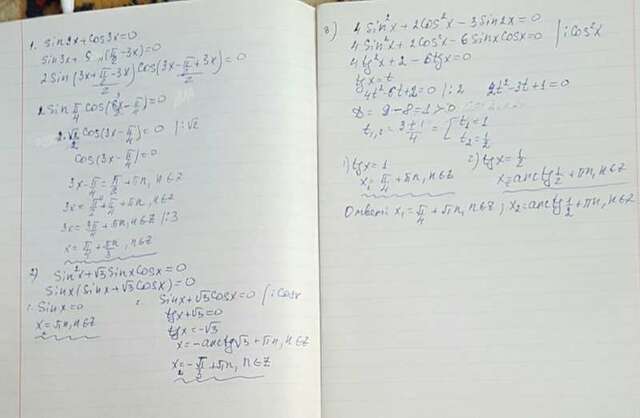 1. Sin3x+cos3x=0
Sin3x+S +(π/2-3x)=0
2Sin(3x+π/2-3x)/2 Cos(3x-π/2+3x)/2=0
2Sinπ/4 Cos(3x-π/4)=0
2·√2/2 Cos(3x-π/4)=0 |:√2
Cos(3x-π/4)=0
3x-π/4=π/2+πn, n∈Z
3x=π/2+π/4+πn, n∈Z
3x=3π/4+πn, n∈Z |:3
x=π/4+πn/3, n∈Z
2) Sin²x+√3SinxCosx=0
Sinx(Sinx+√3Cosx)=0
1. Sinx=0
x=πn, n∈Z
2. Sinx+√3Cosx=0 |:Cosx
tgx+√3=0
tgx=-√3
x=-arctg√3+πn, n∈Z
x=-π/3+πn, n∈Z
3) 4Sin²x+2Cos²x-3Sin2x=0
4Sin²x+2Cos²x-6SinxCosx=0 |:Cos²x
4tg²x+2-6tgx=0
tgx=t
4t²-6t+2=0 |:2 2t²-3t+1=0
D=9-8=1>0
t₁,₂=3±1/4=[t₁=1
t₂=1/2
1) tgx=1
x₁=π/4+πn, n∈Z
2) tgx=1/2
x₂=arctg1/2+πn, n∈Z
Ответ: x₁=π/4+πn, n∈Z; x₂=arctg1/2+πn, n∈Z